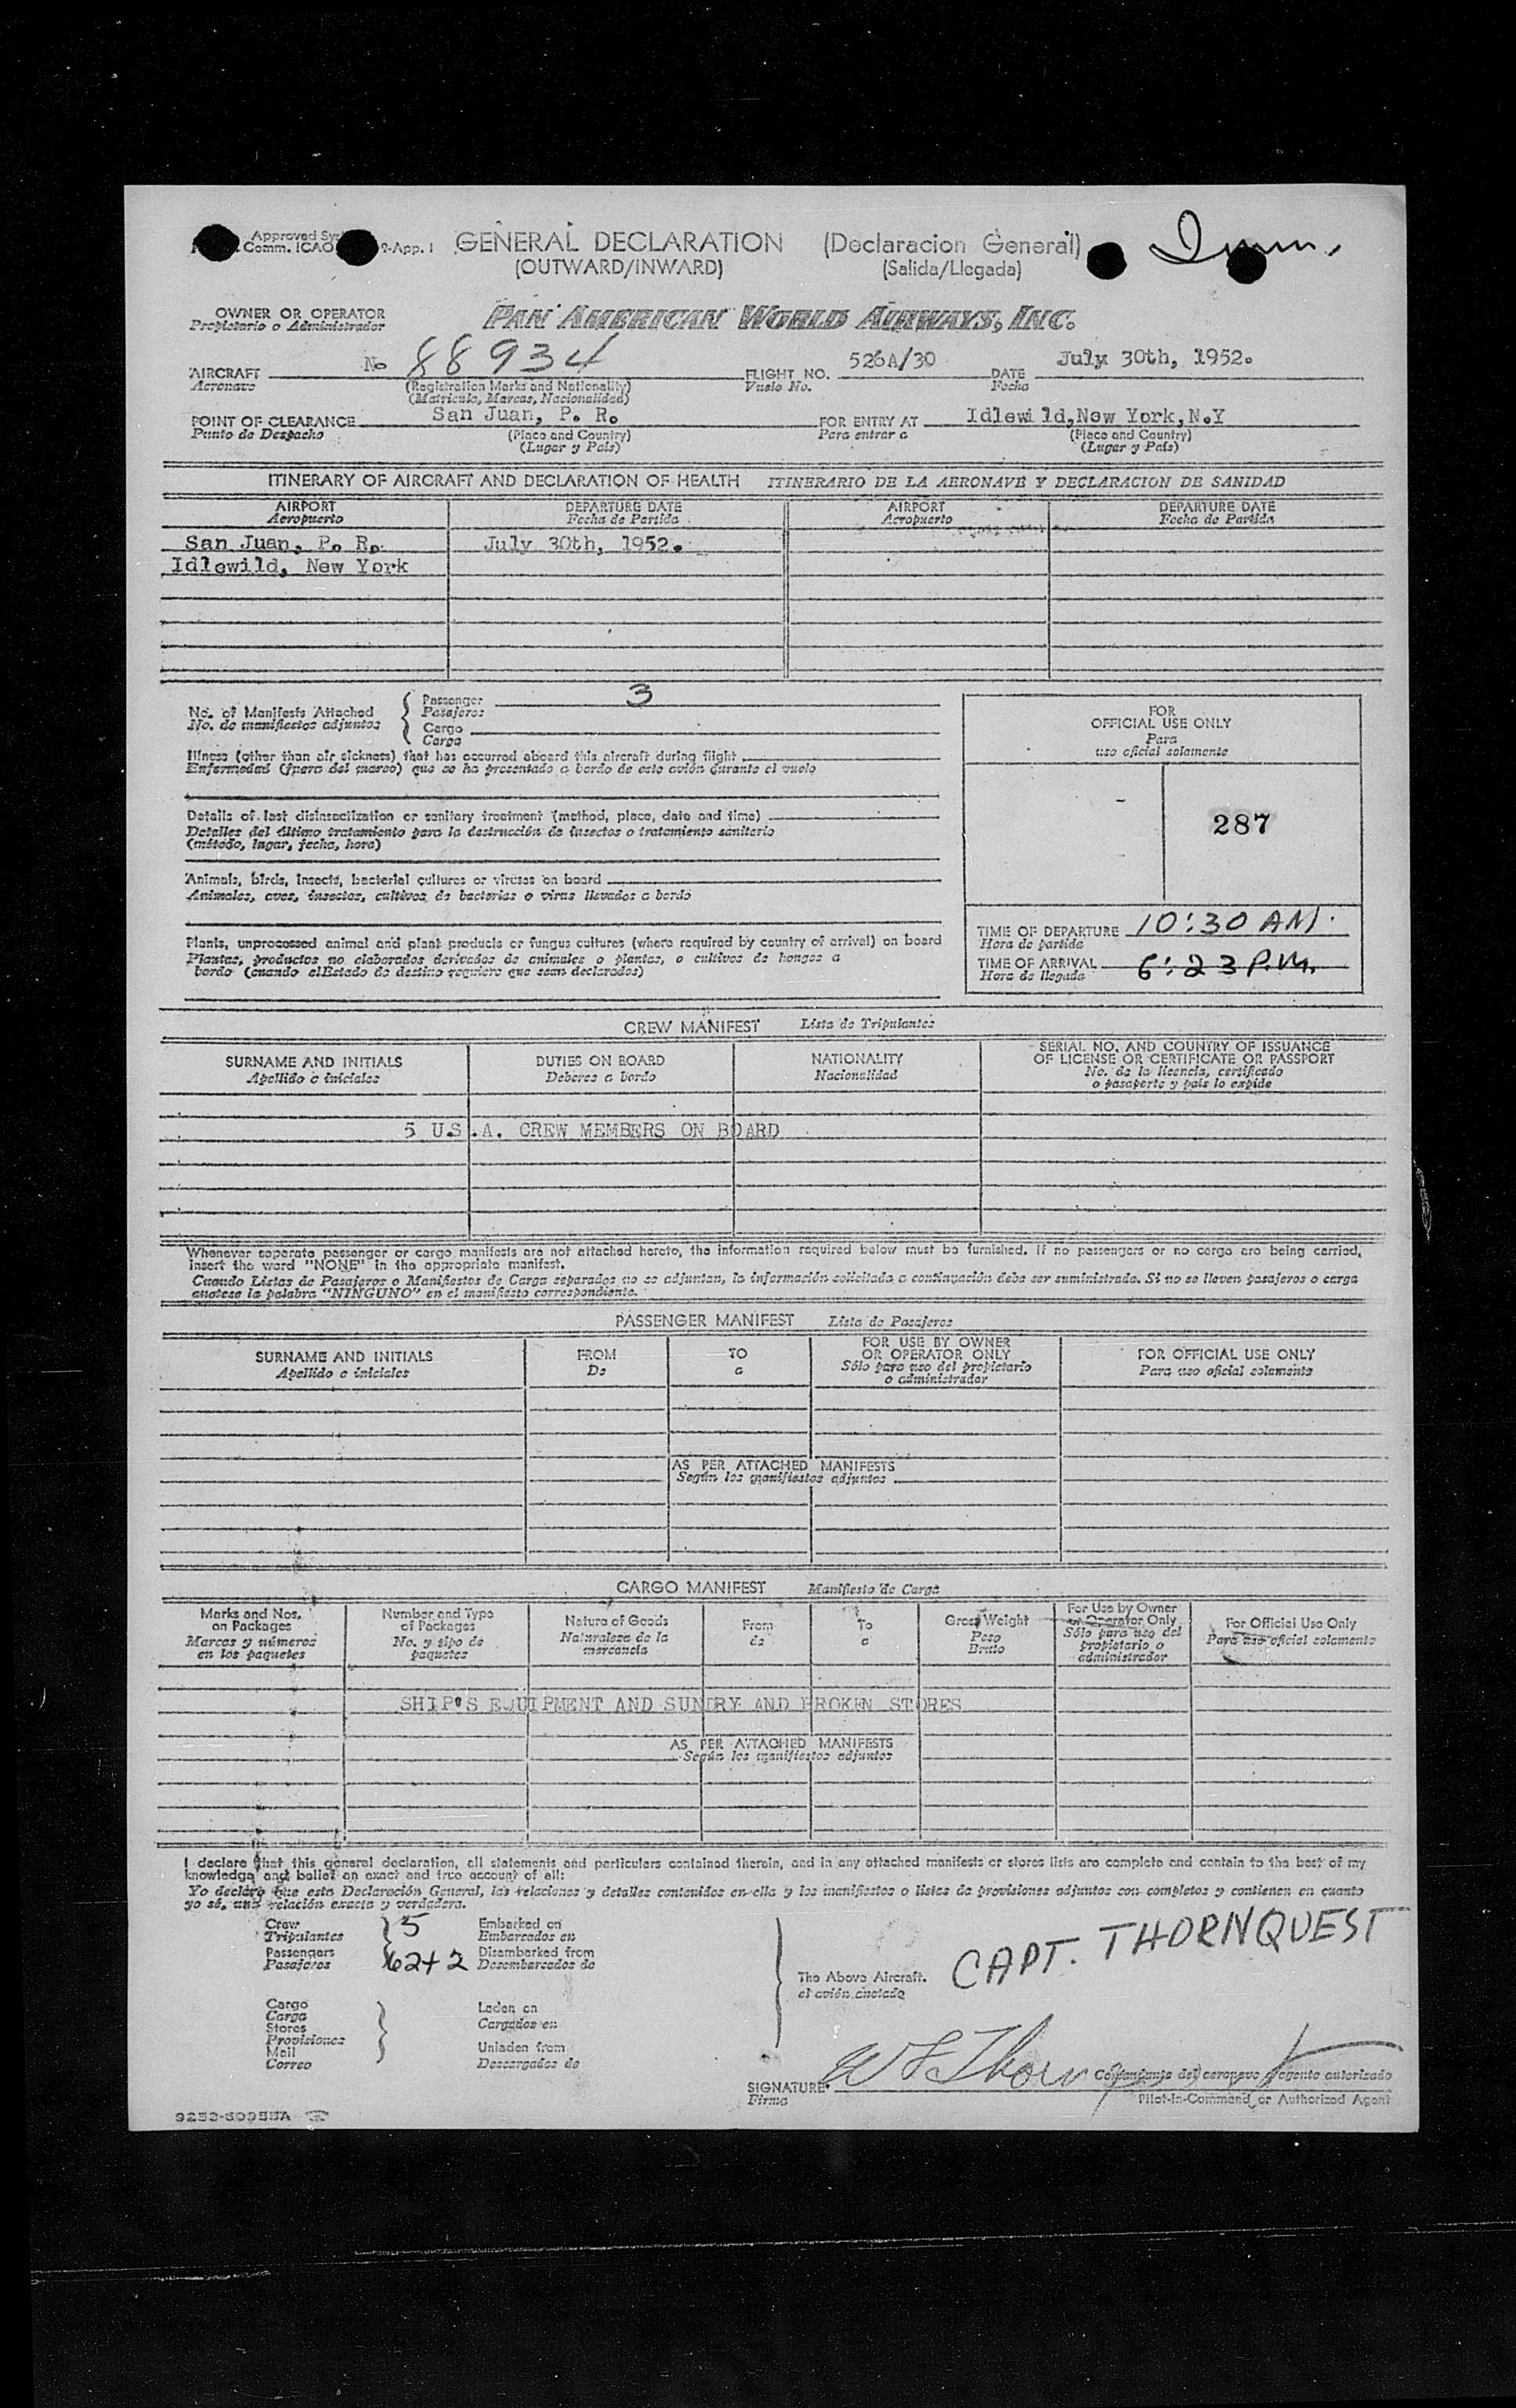 Approved
Comm. ICAO 9-App. 1
GENERAL DECLARATION (Declaracion General)
Imm.
(OUTWARD/INWARD) (Salida/Llegada)
OWNER OR OPERATOR
Propietario o Administrador
PAN AMERICAN WORLD AIRWAYS, INC.
AIRCRAFT No 88934 FLIGHT NO. 526A/30 DATE July 30th, 1952.
Aeronave (Registration Marks and Nationality) Vuelo No. Fecha
(Matricula, Marcas, Nacionalidad)
POINT OF CLEARANCE San Juan, P. R. FOR ENTRY AT Idlewild,New York,N.Y
Punto de Despacho (Place and Country) Para entrar a (Place and Country)
(Lugar y País) (Lugar y País)
ITINERARY OF AIRCRAFT AND DECLARATION OF HEALTH ITINERARIO DE LA AERONAVE Y DECLARACION DE SANIDAD
AIRPORT DEPARTURE DATE AIRPORT DEPARTURE DATE
Aeropuerto Fecha de Partida Aeropuerto Fecha de Partida
San Juan, P. R. July 30th, 1952.
Idlewild, New York
No. of Manifests Attached
No. de manifiestos adjuntos
Passenger 3
Pasajeros
Cargo
Carga
Illness (other than air sickness) that has occurred aboard this aircraft during flight
Enfermedad (fuera del mareo) que se ha presentado a bordo de este avión durante el vuelo
Details of last disinsectization or sanitary treatment (method, place, date and time)
Detalles del último tratamiento para la destrucción de insectos o tratamiento sanitario
(método, lugar, fecha, hora)
Animals, birds, insects, bacterial cultures or viruses on board
Animales, aves, insectos, cultivos de bacterias o virus llevados a bordo
Plants, unprocessed animal and plant products or fungus cultures (where required by country of arrival) on board
Plantas, productos no elaborados derivados de animales o plantas, o cultivos de hongos a
bordo (cuando el Estado de destino requiere que sean declarados)
FOR
OFFICIAL USE ONLY
Para
uso oficial solamente
287
TIME OF DEPARTURE 10:30 AM.
Hora de partida
TIME OF ARRIVAL 6:23 P.M.
Hora de llegada
CREW MANIFEST Lista de Tripulantes
SURNAME AND INITIALS DUTIES ON BOARD NATIONALITY SERIAL NO. AND COUNTRY OF ISSUANCE
Apellido e iniciales Deberes a bordo Nacionalidad OF LICENSE OR CERTIFICATE OR PASSPORT
No. de la licencia, certificado
o pasaporte y país lo expide
5 U.S.A. CREW MEMBERS ON BOARD
Whenever separate passenger or cargo manifests are not attached hereto, the information required below must be furnished. If no passengers or no cargo are being carried,
insert the word "NONE" in the appropriate manifest.
Cuando Listas de Pasajeros o Manifiestos de Carga separados no se adjuntan, la información solicitada a continuación debe ser suministrada. Si no se llevan pasajeros o carga
anotese la palabra "NINGUNO" en el manifiesto correspondiente.
PASSENGER MANIFEST Lista de Pasajeros
SURNAME AND INITIALS FROM TO FOR USE BY OWNER FOR OFFICIAL USE ONLY
Apellido e iniciales De a OR OPERATOR ONLY Para uso oficial solamente
Sólo para uso del propietario
o administrador
AS PER ATTACHED MANIFESTS
Según los manifiestos adjuntos
CARGO MANIFEST Manifiesto de Carga
Marks and Nos. on Packages
Marcas y números en los paquetes
Number and Type of Packages
No. y tipo de paquetes
Nature of Goods
Naturaleza de la mercancia
From
de
To
a
Gross Weight
Peso Bruto
For Use by Owner or Operator Only
Sólo para uso del propietario o administrador
For Official Use Only
Para uso oficial solamente
SHIP'S EQUIPMENT AND SUNDRY AND BROKEN STORES
AS PER ATTACHED MANIFESTS
Según los manifiestos adjuntos
I declare that this general declaration, all statements and particulars contained therein, and in any attached manifests or stores lists are complete and contain to the best of my
knowledge and belief an exact and true account of all:
Yo declaro que esta Declaración General, las relaciones y detalles contenidos en ella y los manifiestos o listas de provisiones adjuntos son completos y contienen en cuanto
yo sé, una relación exacta y verdadera.
Crew 5 Embarked on
Tripulantes Embarcados en
Passengers 62+2 Disembarked from
Pasajeros Desembarcados de
The Above Aircraft.
el avión anotado
CAPT. THORNQUEST
Cargo Laden on
Carga Cargados en
Stores
Provisiones
Mail Unladen from
Correo Descargados de
SIGNATURE
Firma
Comandante del aeronave o agente autorizado
Pilot-in-Command or Authorized Agent